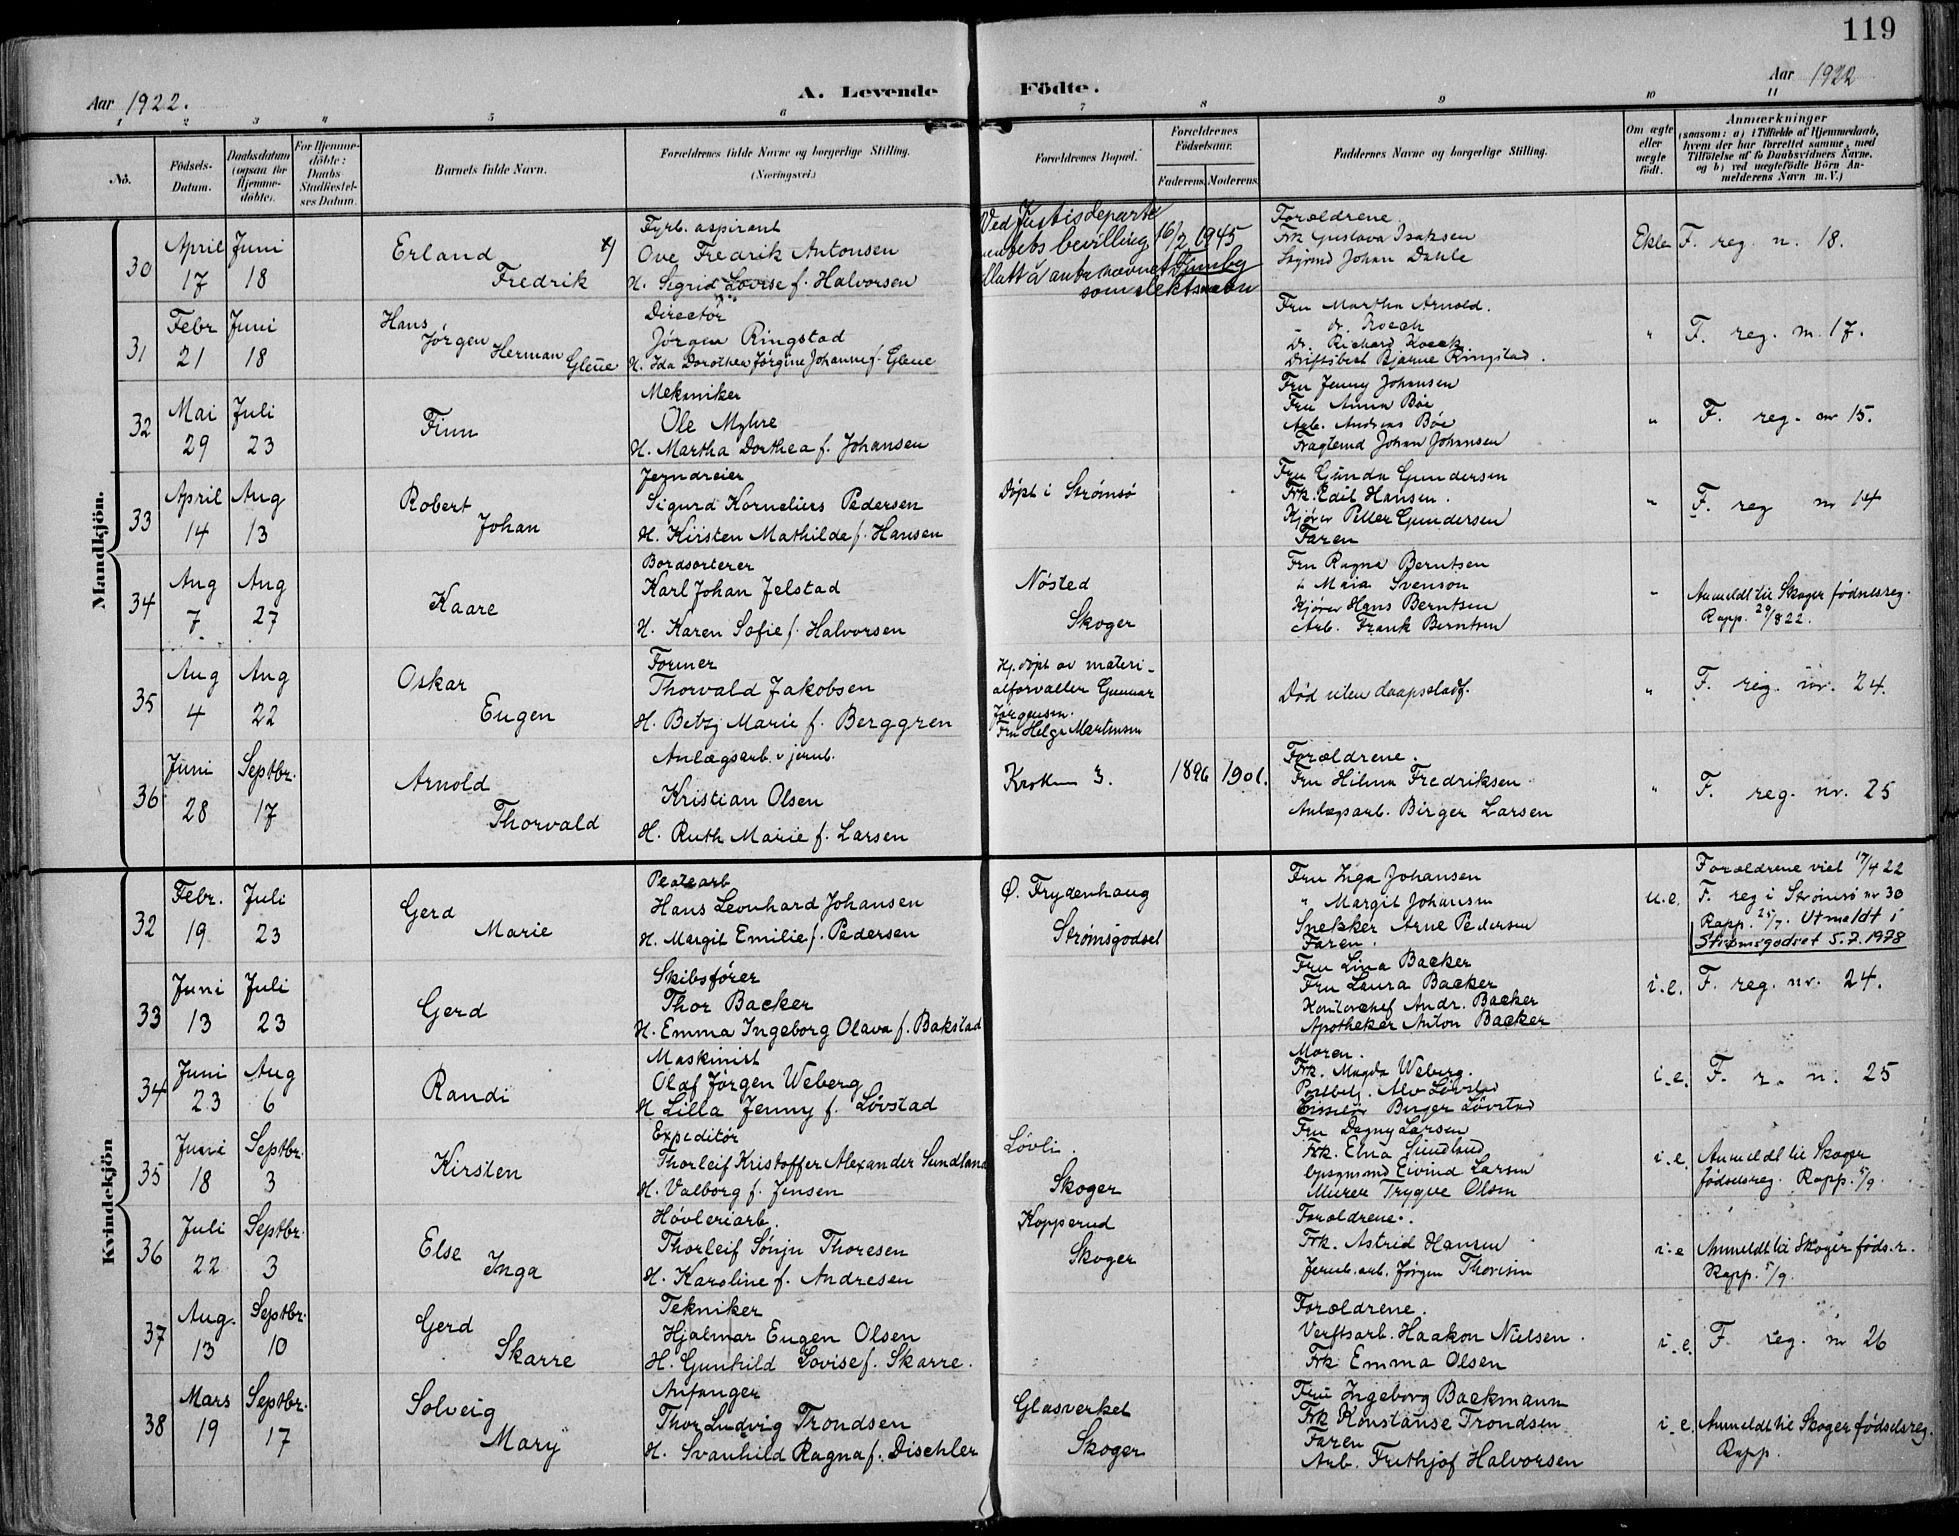 119
Aar 1922.
A. Levende Födte.
Aar 1922
1 2 3 4 5 6 7 8 9 10 11
No.
Födsels-Datum.
Daabsdatum (ogsaa for Hjemme-döbte).
For Hjemme-döbte: Daabs Stadfæstel-ses Datum.
Barnets fulde Navn.
Forældrenes fulde Navne og borgerlige Stilling. (Næringsvei.)
Forældrenes Bopæl.
Forældrenes Födselsaar.
Faderens. Moderens.
Faddernes Navne og borgerlige Stilling.
Om ægte eller uægte födt.
Anmærkninger
(saasom: a) i Tilfælde af Hjemmedaab, hvem der har forrettet samme, med Tilföielse af to Daabsvidners Navne, og b) ved uægtefödte Börn Anmelderens Navn m. V.)
Mandkjön.
30
April 17
Juni 18
Erland Fredrik x)
Fyrb. aspirant
Ove Fredrik Antonsen
H. Sigrid Lovise f. Halvorsen
Ved Justisdeparte
mentets bevilling 16/2 1945
tillatt å anta navnet
som slektsnavn
Forældrene.
Frk Gustava Isaksen
Johan Dahle
Ekte
F. reg. n. 18.
31
Febr 21
Juni 18
Hans Jørgen Herman Gleüe
Director
Jørgen Ringstad
H. Ida Dorothea Jørgine Johanne f. Gleue
Fru Martha Arnold.
Dr. Richard
Bjarne Ringstad.
"
F. reg. n. 17.
32
Mai 29
Juli 23
Finn
Mekaniker
Ole Myhre
H. Martha Dorthea f. Johansen
Fru Jenny Johansen
Fru Anna Bøe
Arb. Andreas Bøe
Johan Johansen
"
F. reg. nr 15.
33
April 14
Aug 13
Robert Johan
Jerndreier
Sigurd Kornelius Pedersen
H. Kirsten Mathilde f. Hansen
Døpt i Strømsø
Fru Gunda Gundersen
Frk. Edit Hansen.
Kjører Petter Gundersen
Faren
"
F. reg nr 14
34
Aug 7
Aug 27
Kaare
Bordsorterer
Karl Johan Jelstad
H. Karen Sofie f. Halvorsen
Nøsted
Skoger
Fru Ragna Berntsen
" Maia Svenson
Kjører Hans Berntsen
Arb. Frank Berntsen
"
Anmeldt til Skoger fødselsreg.
Rapp. 29/8 22.
35
Aug 4
Aug 22
Oskar Eugen
Former
Thorvald Jakobsen
H. Betzy Marie f. Berggren
Hj. døpt av materi-
alforvalter Gunnar
Jørgensen.
Fru Helga Martinsen
Død uten daapsstadf.
"
F. reg. nr. 24.
36
Juni 28
Septbr. 17
Arnold Thorvald
Anlægsarb. v jernb.
Kristian Olsen
H. Ruth Marie f. Larsen
Kroken 3.
1896
1901.
Forældrene.
Fru Hilma Fredriksen
Anlægsarb. Birger Larsen
"
F. reg. nr. 25
Kvindekjön
32
Febr. 19
Juli 23
Gerd Marie
Hans Leonhard Johansen
H. Margit Emilie f. Pedersen
Ø. Frydenhaug
Strømsgodset
Fru Inga Johansen
" Margit Johansen
Snekker Arne Pedersen
Faren.
u.e.
Forældrene viet 17/4 22
F. reg i Strømsø nr 30
Rapp. 25/7. Utmeldt i
Strømsgodset 5.7.1978
33
Juni 13
Juli 23
Gerd
Skibsfører
Thor Backer
H. Emma Ingeborg Olava f. Bakstad
Fru Lina Backer
Fru Laura Backer
Kontorchef Andr. Backer
Apotheker Anton Backer
i.e.
F. reg. nr. 24.
34
Juni 23
Aug 6
Randi
Maskinist
Olaf Jørgen Weberg
H Lilla Jenny f. Løvstad
Moren.
Frk. Magda Weberg.
Postbetj. Alv Løvstad
Birger Løvstad
i.e.
F. r. n. 25
35
Juni 18
Septbr. 3
Kirsten
Expeditør
Thorleif Kristoffer Alexander Sundland
H. Valborg f. Jensen
Løvli.
Skoger
Fru Dagny Larsen
Frk. Elna Sundlund
Eivind Larsen
Murer Trygve Olsen
i.e.
Anmeldt til Skoger
fødselsreg. Rapp. 5/9.
36
Juli 22
Septbr. 3
Else Inga
Høvleriarb.
Thorleif Sønju Thoresen
H. Karoline f. Andresen
Kopperud
Skoger
Forældrene.
Frk. Astrid Hansen
Jernb.arb. Jørgen Thoresen
i.e
Anmeldt til Skoger føds.r.
Rapp. 5/9.
37
Aug. 13
Septbr. 10
Gerd Skarre
Tekniker
Hjalmar Eugen Olsen
H. Gunhild Lovise f. Skarre.
Forældrene.
Verftsarb. Haakon Nielsen.
Frk. Emma Olsen
i.e.
F. reg. nr 26
38
Mars 19
Septbr. 17
Solveig Mary
Anfanger
Thor Ludvig Trondsen
H. Svanhild Ragna f. Dischler
Glasverket
Skoger
Fru Ingeborg Backmann
Frk Konstanse Trondsen
Faren
Arb. Frithjof Halvorsen
i.e.
Anmeldt til Skoger fødselsreg.
Rapp.